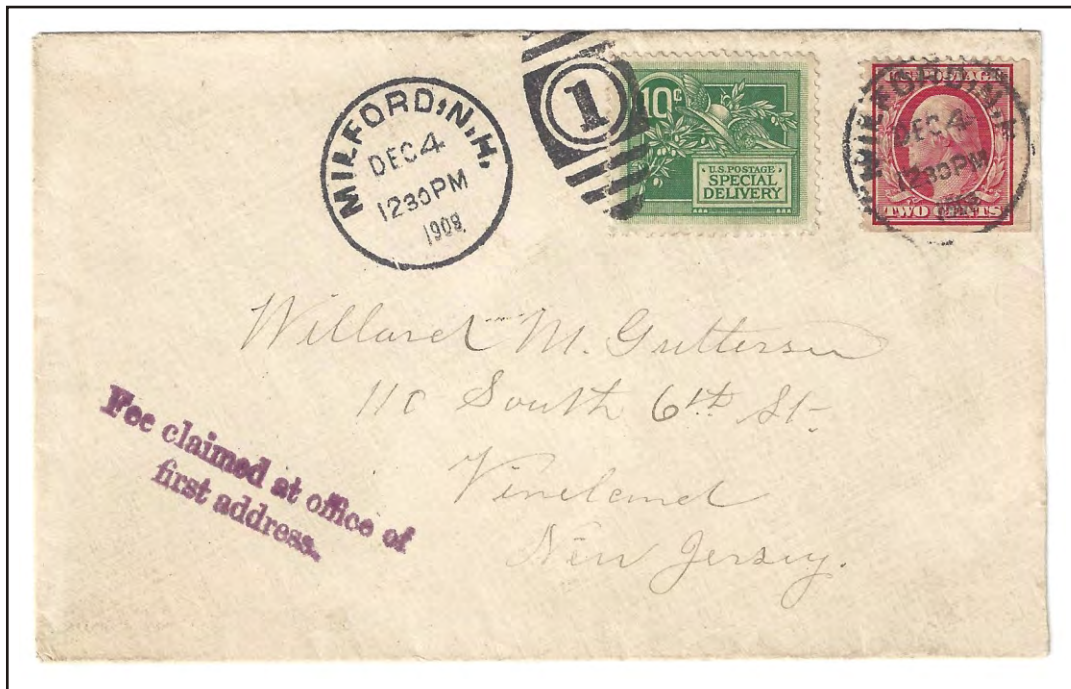 MILFORD, N.H.
DEC 4
1230PM
1908
1
10¢
U.S. POSTAGE
SPECIAL
DELIVERY
U.S. POSTAGE
MILFORD, N.H.
DEC 4
1230PM
1908
TWO CENTS
Willard M. Gutterson
110 South 6th St.
Vineland
New Jersey.
Fee claimed at office of
first address.